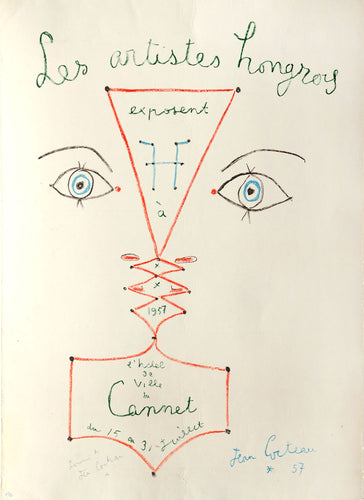 Les artistes hongrois
exposent
H
à
1957
l'hotel
de
Ville
du
Cannet
du 15 au 31 Juillet
Jean Cocteau
* 57